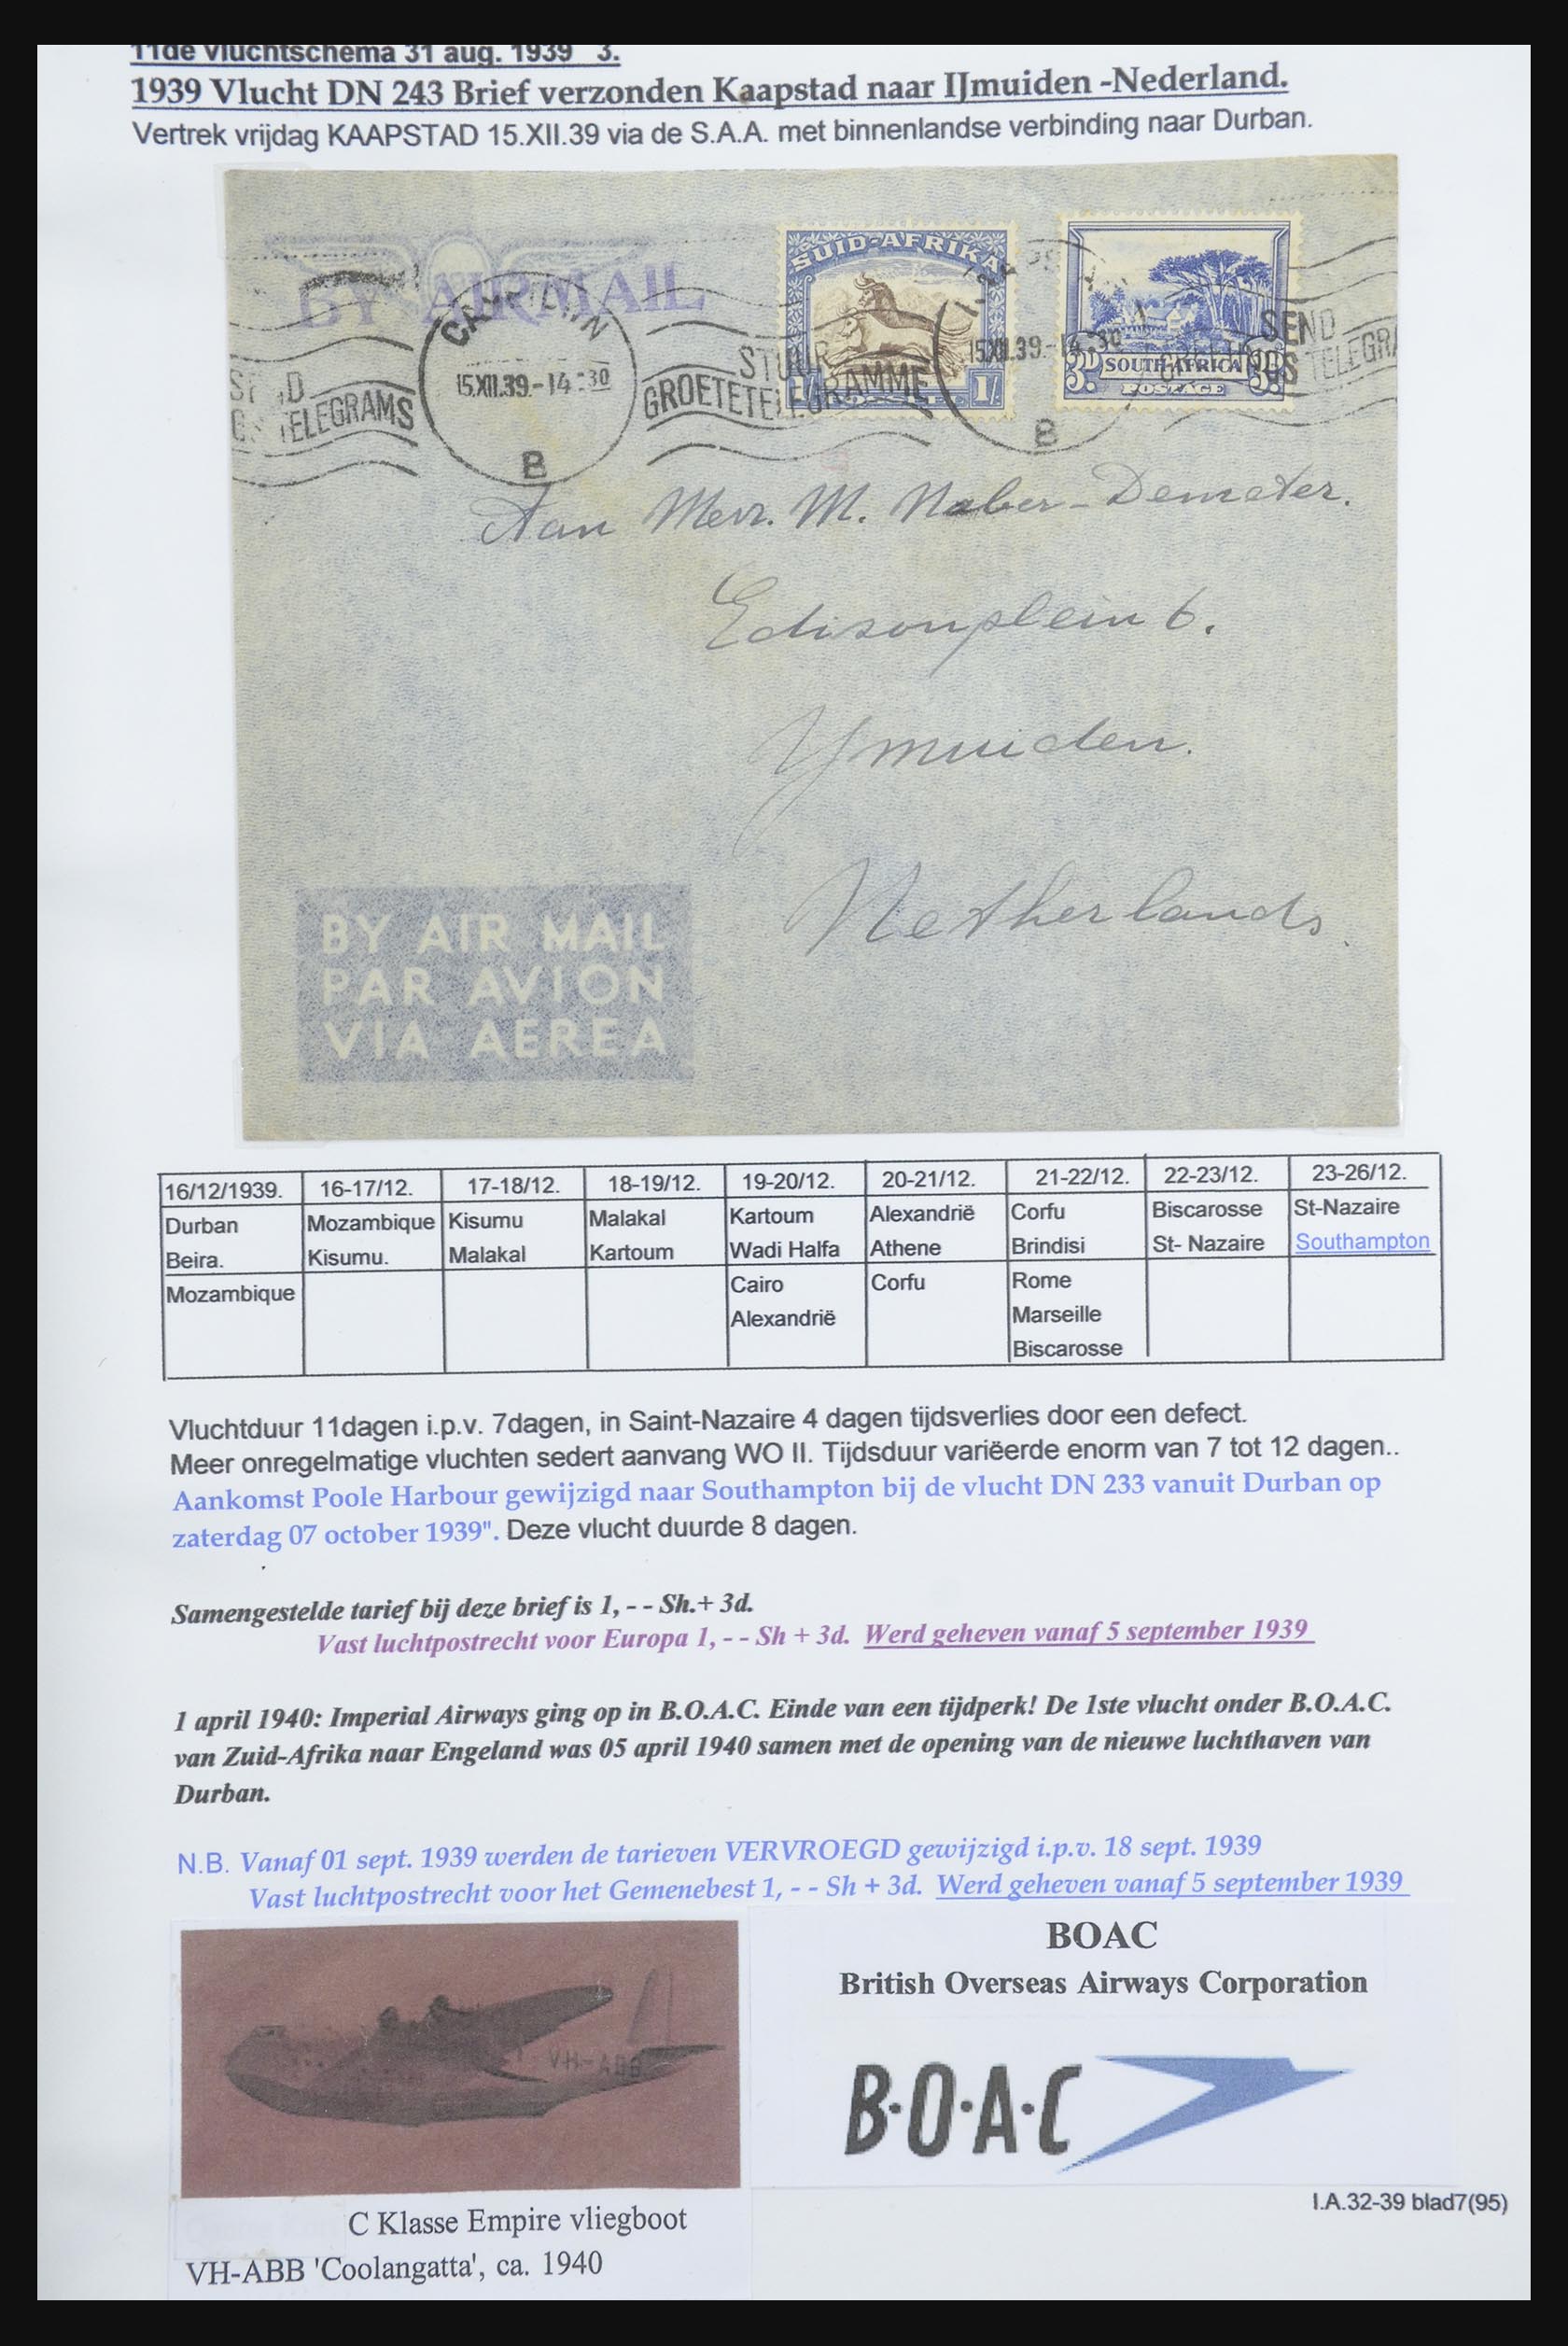 11de vluchtschema 31 aug. 1939   3.
1939 Vlucht DN 243 Brief verzonden Kaapstad naar IJmuiden -Nederland.
Vertrek vrijdag KAAPSTAD 15.XII.39 via de S.A.A. met binnenlandse verbinding naar Durban.
BY AIRMAIL
SUID-AFRIKA
1/ 1/
3D SOUTH AFRICA 3D
POSTAGE
TELEGRAMS
15.XII.39.-14-30
B
STUUR
GROETETELEGRAMME
15.XII.39.-14.30
B
SEND
TELEGRA
Aan Mevr. M. Naber-Demeter.
Edisonplein 6.
Ymuiden.
Netherlands.
BY AIR MAIL
PAR AVION
VIA AEREA
16/12/1939. 16-17/12. 17-18/12. 18-19/12. 19-20/12. 20-21/12. 21-22/12. 22-23/12. 23-26/12.
Durban Mozambique Kisumu Malakal Kartoum Alexandrië Corfu Biscarosse St-Nazaire
Beira. Kisumu. Malakal Kartoum Wadi Halfa Athene Brindisi St- Nazaire Southampton
Mozambique Cairo Corfu Rome
Alexandrië Marseille
Biscarosse
Vluchtduur 11dagen i.p.v. 7dagen, in Saint-Nazaire 4 dagen tijdsverlies door een defect.
Meer onregelmatige vluchten sedert aanvang WO II. Tijdsduur variëerde enorm van 7 tot 12 dagen..
Aankomst Poole Harbour gewijzigd naar Southampton bij de vlucht DN 233 vanuit Durban op
zaterdag 07 october 1939". Deze vlucht duurde 8 dagen.
Samengestelde tarief bij deze brief is 1, - - Sh.+ 3d.
Vast luchtpostrecht voor Europa 1, - - Sh + 3d. Werd geheven vanaf 5 september 1939
1 april 1940: Imperial Airways ging op in B.O.A.C. Einde van een tijdperk! De 1ste vlucht onder B.O.A.C.
van Zuid-Afrika naar Engeland was 05 april 1940 samen met de opening van de nieuwe luchthaven van
Durban.
N.B. Vanaf 01 sept. 1939 werden de tarieven VERVROEGD gewijzigd i.p.v. 18 sept. 1939
Vast luchtpostrecht voor het Gemenebest 1, - - Sh + 3d. Werd geheven vanaf 5 september 1939
VH-ABB
BOAC
British Overseas Airways Corporation
B·O·A·C
I.A.32-39 blad7(95)
C Klasse Empire vliegboot
VH-ABB 'Coolangatta', ca. 1940